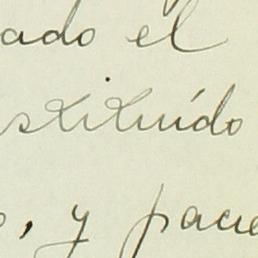 ado el
stituído
o, y pacie